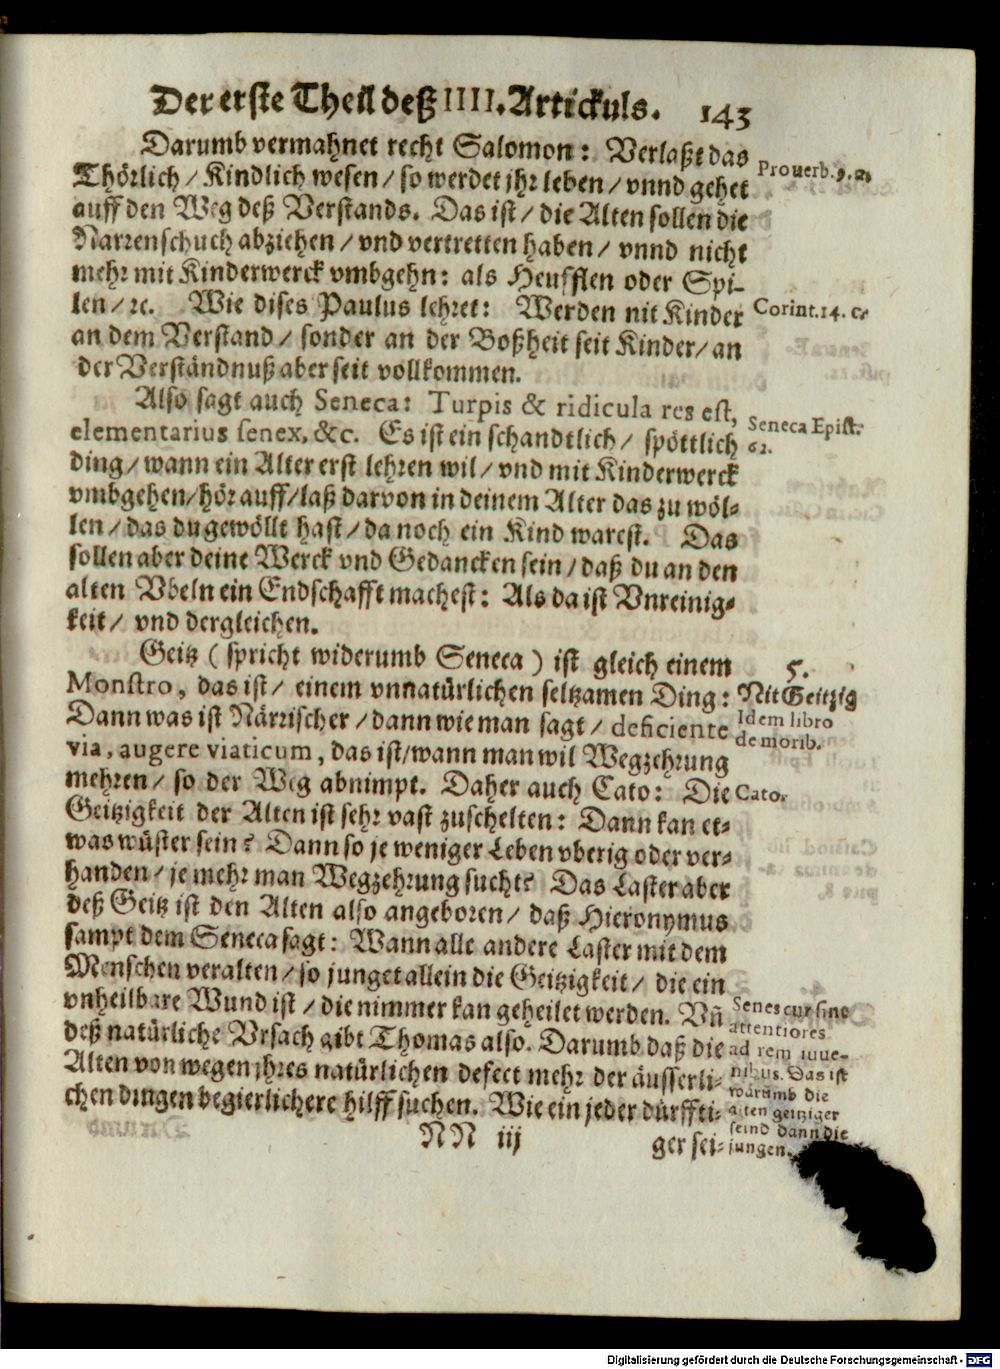 Der erste Theil deß IIII. Artickuls. 143
Darumb vermahnet recht Salomon: Verlaßt das
Thörlich / Kindlich wesen / so werdet jhr leben / vnnd gehet
auff den Weg deß Verstands. Das ist / die Alten sollen die
Narrenschuch abziehen / vnd vertretten haben / vnnd nicht
mehr mit Kinderwerck vmbgehn: als Heufflen oder Spi-
len / ꝛc. Wie dises Paulus lehret: Werden nit Kinder
an dem Verstand / sonder an der Boßheit seit Kinder / an
der Verständnuß aber seit vollkommen.
Prouerb. 9. a.
Corint. 14. c.
Also sagt auch Seneca: Turpis & ridicula res est,
elementarius senex, &c. Es ist ein schandtlich / spöttlich
ding / wann ein Alter erst lehren wil / vnd mit Kinderwerck
vmbgehen / hör auff / laß darvon in deinem Alter das zu wöl-
len / das du gewöllt hast / da noch ein Kind warest. Das
sollen aber deine Werck vnd Gedancken sein / daß du an den
alten Vbeln ein Endschafft machest: Als da ist Vnreinig-
keit / vnd dergleichen.
Seneca Epist.
62.
Geitz ( spricht widerumb Seneca ) ist gleich einem
Monstro, das ist / einem vnnatürlichen seltzamen Ding:
Dann was ist Närrischer / dann wie man sagt / deficiente
via, augere viaticum, das ist / wann man wil Wegzehrung
mehren / so der Weg abnimpt. Daher auch Cato: Die
Geitzigkeit der Alten ist sehr vast zuschelten: Dann kan et-
was wüster sein? Dann so je weniger Leben vberig oder ver-
handen / je mehr man Wegzehrung sucht? Das Laster aber
deß Geitz ist den Alten also angeboren / daß Hieronymus
sampt dem Seneca sagt: Wann alle andere Laster mit dem
Menschen veralten / so junget allein die Geitzigkeit / die ein
vnheilbare Wund ist / die nimmer kan geheilet werden. Vñ
deß natürliche Vrsach gibt Thomas also. Darumb daß die
Alten von wegen jhres natürlichen defect mehr der äusserli-
chen dingen begierlichere hilff suchen. Wie ein jeder dürffti-
5.
Nit Geitzig
Idem libro
de morib.
Cato.
Senes cur sint
attentiores
ad rem iuue-
nibus. Das ist
warumb die
alten geitziger
seind dann die
jungen.
NN iij
ger sei-
Digitalisierung gefördert durch die Deutsche Forschungsgemeinschaft - DFG